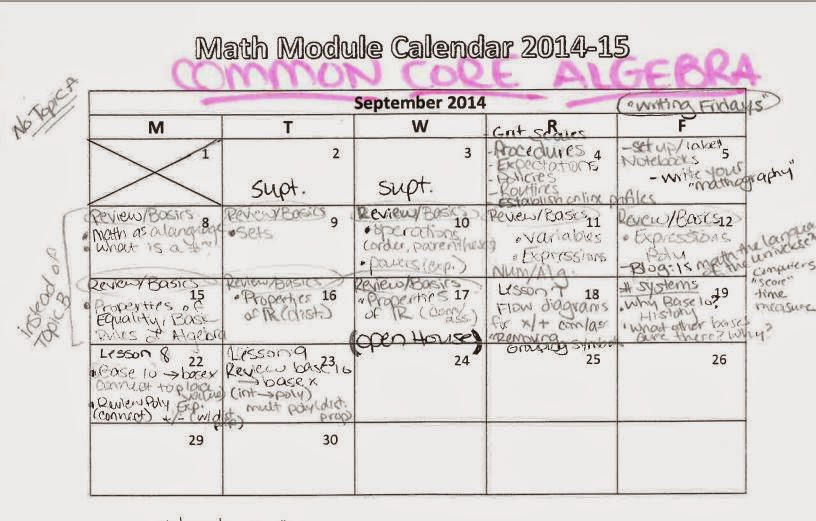 Math Module Calendar 2014-15
COMMON CORE ALGEBRA
No Topic A
September 2014
"Writing Fridays"
M T W R F
1
2
Supt.
3
Supt.
4
- Grit Scales
- Procedures
- Expectations
- Policies
- Routines
- Establish online profiles
5
- set up/label
Notebooks
- Write your
"mathography"
instead of
Topic B
8
Review/Basics
• Math as a language
• What is a #?
9
Review/Basics
• Sets
10
Review/Basics
• operations
(order, parentheses)
• powers (exp.)
11
Review/Basics
• Variables
• Expressions
Num/Alg.
12
Review/Basics
• Expressions
Poly
- Blog: Is math the language
of the universe?
15
Review/Basics
• Properties of
Equality/Basic
Rules of Algebra
16
Review/Basics
• Properties
of R (dist)
17
Review/Basics
• Properties
of R (com/
ass.)
(Open House)
18
Lesson 7
Flow diagrams
for x/+ com/ass
• Removing
Grouping symbols
19
# systems
• Why Base 10?
History
• What other bases
are there? Why?
computers
"score"
time
measure
22
Lesson 8
• Base 10 → base x
connect to place
value)
• Review Poly Exp.
(connect) +/- (w/dist.
prop)
23
Lesson 9
Review base 10
→ base x
(int → poly)
mult poly (dist.
prop)
24
25
26
29
30